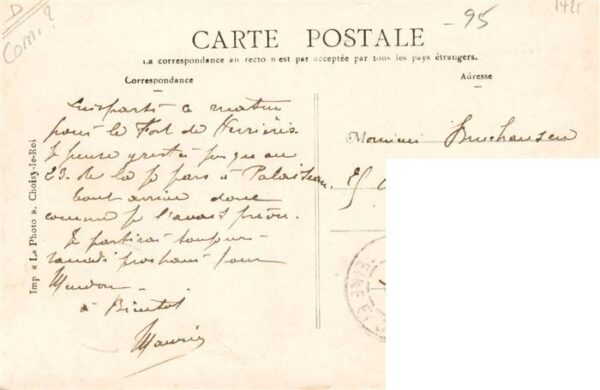 D
Com. ?
- 95
CARTE POSTALE
La correspondance au recto n'est pas acceptée par tous les pays étrangers.
Correspondance
Adresse
Suis parti ce matin
pour le Fort de Verrières
Je pense y rester jusqu'au
23. de là je pars à Palaiseau.
Tout arrive donc
comme je l'avais prévu.
Je partirai toujours
samedi prochain pour
Meudon.
à Bientot
Maurice
Monsieur
Imp. « La Photo ». Choisy-le-Roi
SEINE ET